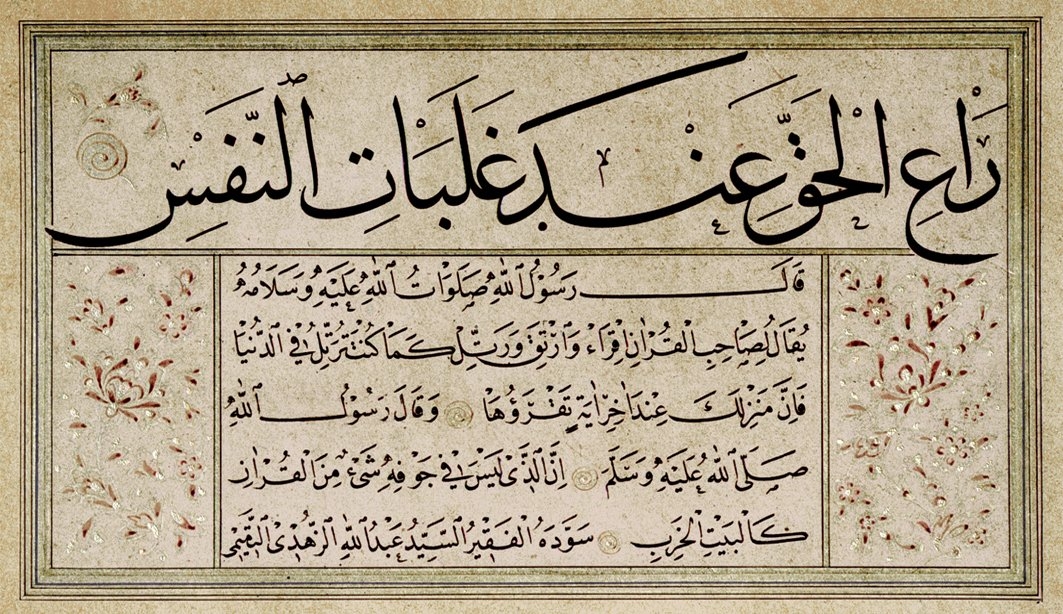 رَاعِ الْحَقَّ عِنْدَ غَلَبَاتِ النَّفْسِ
قَالَ رَسُوْلُ اللهِ صَلَوَاتُ اللهِ عَلَيْهِ وَسَلَامُهُ
يُقَالُ لِصَاحِبِ الْقُرْاٰنِ اِقْرَاءْ وَارْتَقِ وَرَتِّلْ كَمَا كُنْتَ تُرَتِّلُ فِي الدُّنْيَا
فَاِنَّ مَنْزِلَكَ عِنْدَ اٰخِرِ اٰيَةٍ تَقْرَؤُهَا وَقَالَ رَسُوْلُ اللهِ
صَلَّى اللهُ عَلَيْهِ وَسَلَّمَ اِنَّ الَّذِيْ لَيْسَ فِيْ جَوْفِهِ شَيْءٌ مِنَ الْقُرْاٰنِ
كَالْبَيْتِ الْخَرِبِ سَوَّدَهُ الْفَقِيْرُ السَّيِّدُ عَبْدُ اللهِ الزُّهْدِيْ التَّمِيْمِيْ